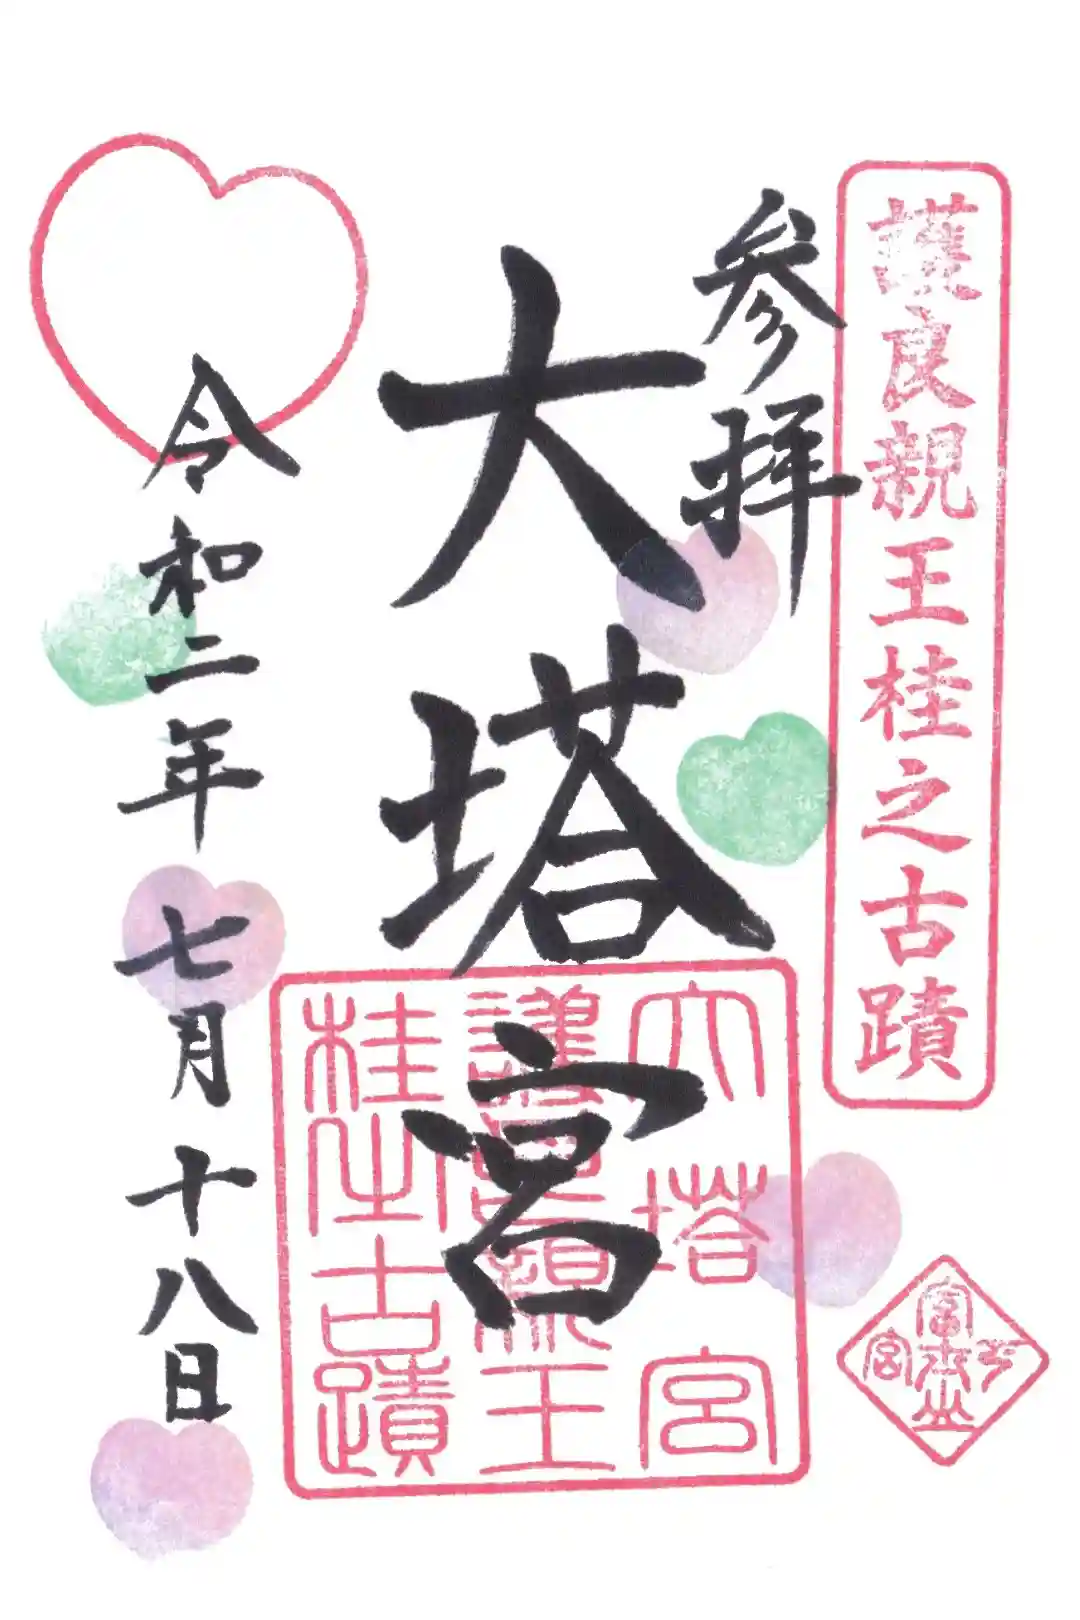 護良親王桂之古蹟
参拝
大塔宮
大塔宮
護良親王
桂之古蹟
令和二年七月十八日